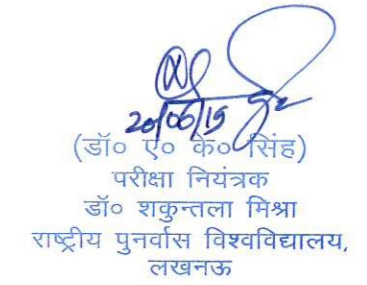 20/06/15
(डॉ० ए० के० सिंह)
परीक्षा नियंत्रक
डॉ० शकुन्तला मिश्रा
राष्ट्रीय पुनर्वास विश्वविद्यालय,
लखनऊ